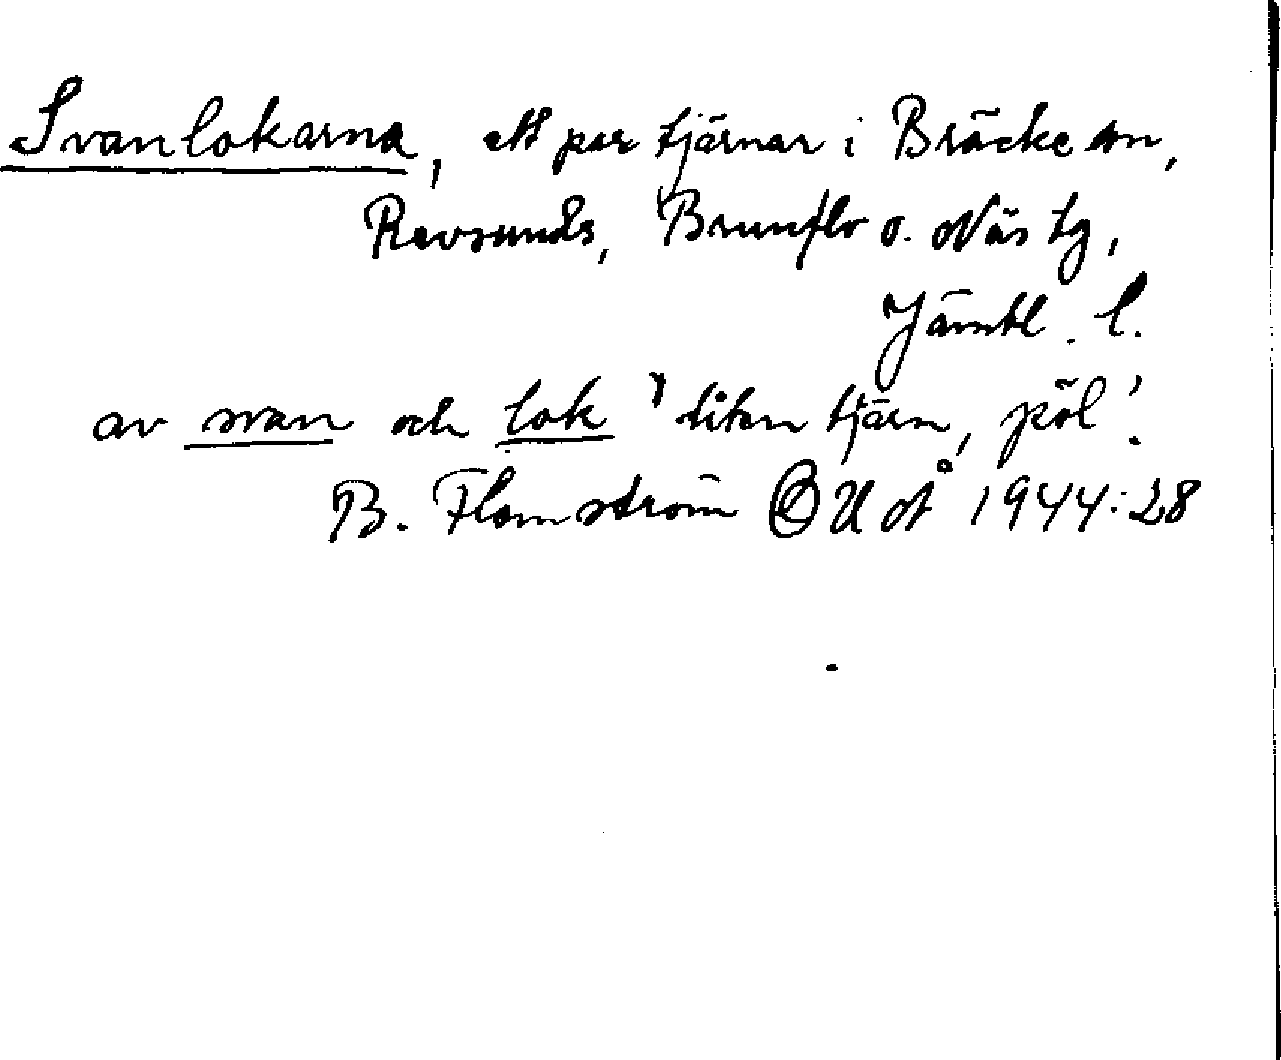 Svanlokarna, ett par tjärnar i Bräcke sn,
Revsunds, Brunflo o. Näs tg,
Jämtl. l.
av svan och lok 'liten tjärn, pöl'.
B. Flemström OUÅ 1944:28